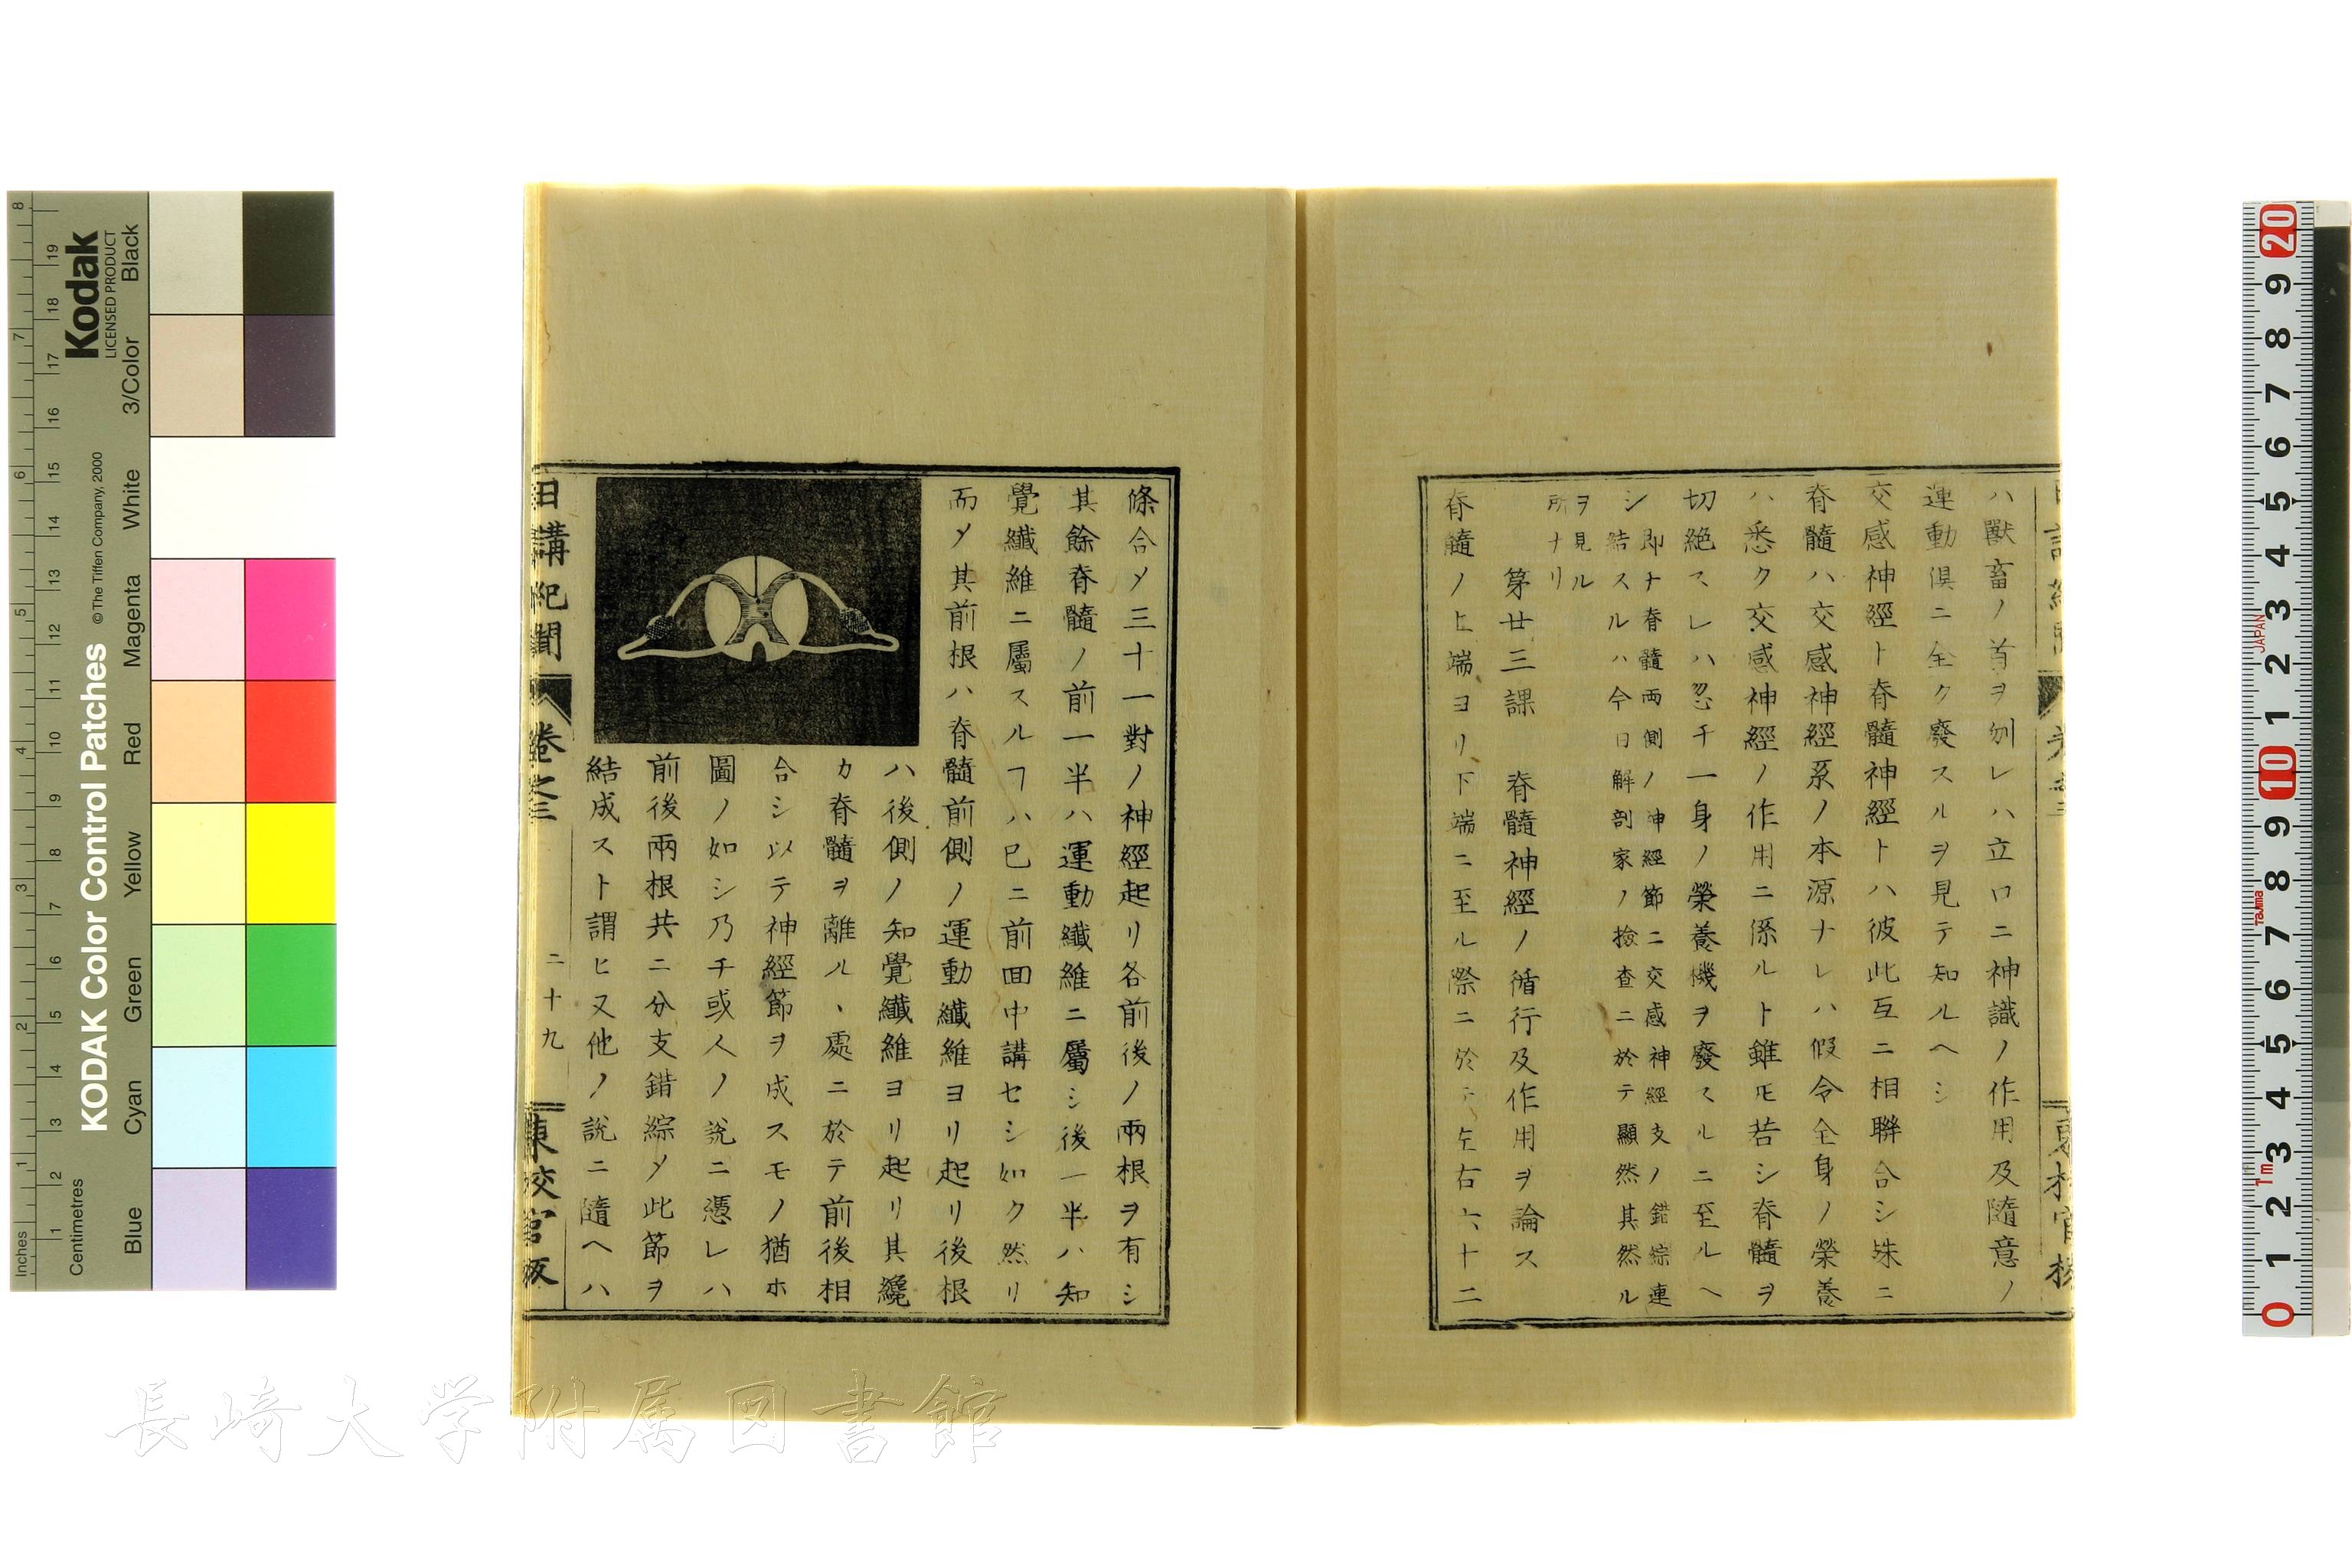 ハ獸畜ノ首ヲ刎レハ立ロニ神識ノ作用及隨意ノ
運動俱ニ全ク廢スルヲ見テ知ルヘシ
交感神經ト脊髓神經トハ彼此互ニ相聯合シ殊ニ
脊髓ハ交感神經系ノ本源ナレハ假令全身ノ榮養
ハ悉ク交感神經ノ作用ニ係ルト雖𪜈若シ脊髓ヲ
切絕スレハ忽チ一身ノ榮養機ヲ廢スルニ至ルヘ
シ
即チ脊髓兩側ノ神經節ニ交感神經支ノ錯綜連
結スルハ今日解剖家ノ撿查ニ於テ顯然其然ル
ヲ見ル
所ナリ
第廿三課 脊髓神經ノ循行及作用ヲ論ス
脊髓ノ上端ヨリ下端ニ至ル際ニ於テ左右六十二
條合メ三十一對ノ神經起リ各前後ノ兩根ヲ有シ
其餘脊髓ノ前一半ハ運動纖維ニ屬シ後一半ハ知
覺纖維ニ屬スルヿハ已ニ前囬中講セシ如ク然リ
而メ其前根ハ脊髓前側ノ運動纖維ヨリ起リ後根
ハ後側ノ知覺纖維ヨリ起リ其纔
カ脊髓ヲ離ルヽ處ニ於テ前後相
合シ以テ神經節ヲ成スモノ猶ホ
圖ノ如シ乃チ或人ノ說ニ憑レハ
前後兩根共ニ分支錯綜メ此節ヲ
結成スト謂ヒ又他ノ說ニ隨ヘハ
日講紀聞 卷之三 二十九 東校官板
Kodak
LICENSED PRODUCT
KODAK Color Control Patches
© The Tiffen Company, 2000
Inches
Centimetres
Blue
Cyan
Green
Yellow
Red
Magenta
White
3/Color
Black
JAPAN
Tajima
1m
長崎大学附属図書館